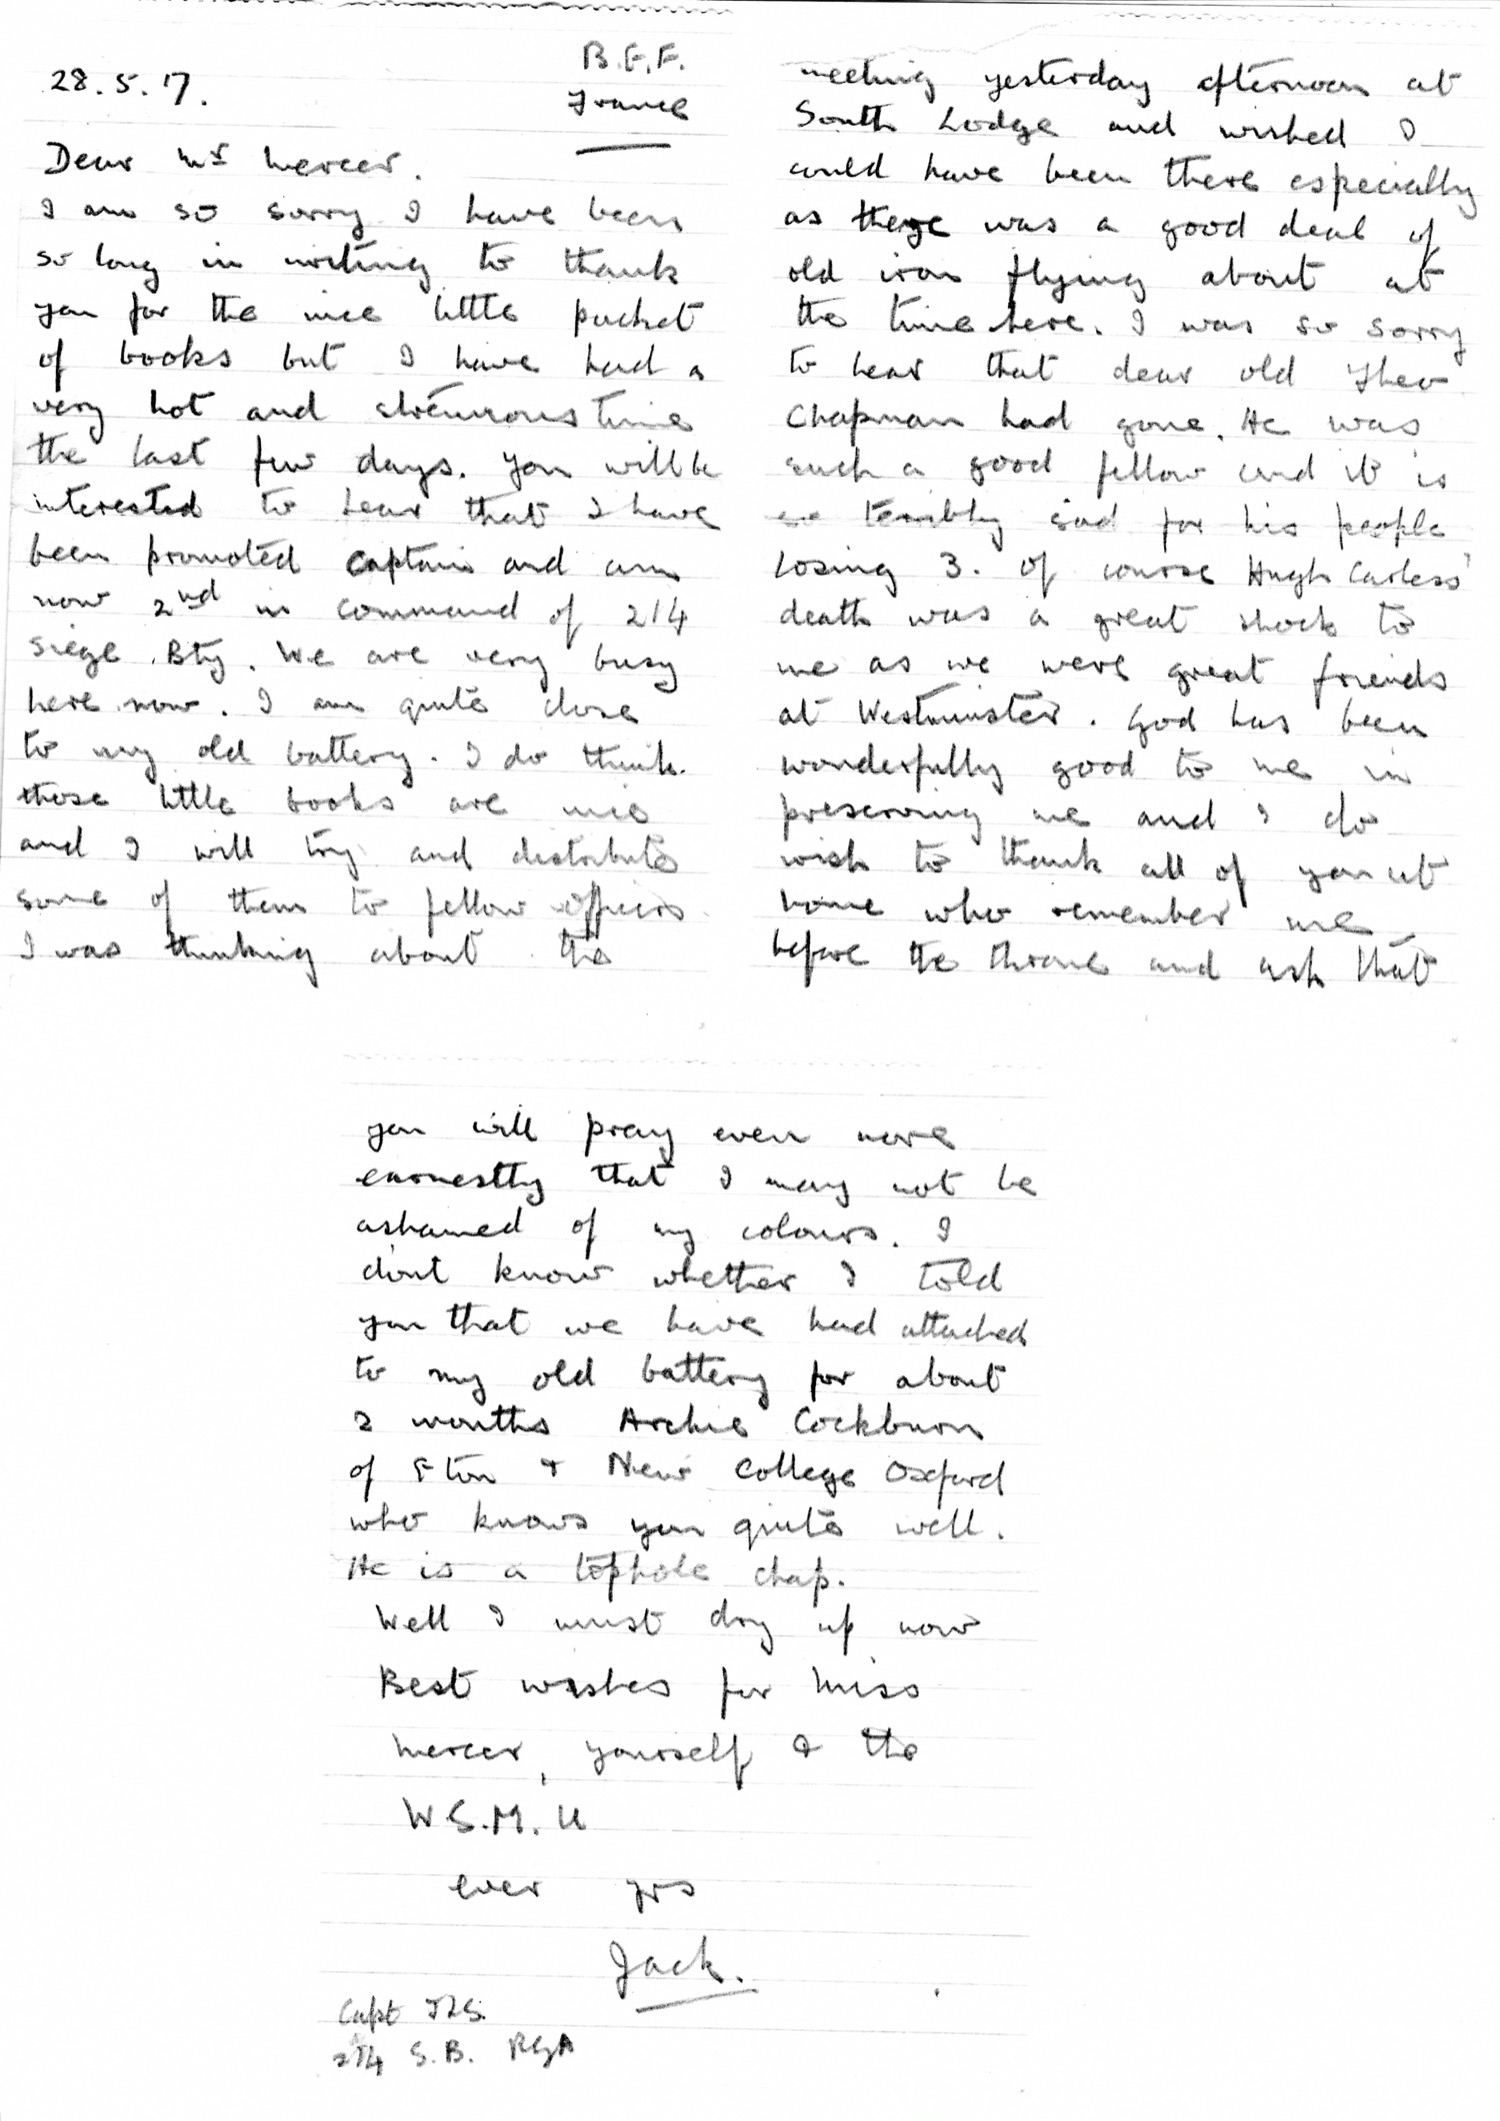 28.5.17.
B.E.F.
France
Dear Mrs Mercer.
I am so sorry I have been
so long in writing to thank
you for the nice little packet
of books but I have had a
very hot and strenuous time
the last few days. You will be
interested to hear that I have
been promoted Captain and am
now 2nd in command of 214
Siege Bty. We are very busy
here now. I am quite close
to my old battery. I do think
those little books are nice
and I will try and distribute
some of them to fellow officers.
I was thinking about the
meeting yesterday afternoon at
South Lodge and wished I
could have been there especially
as there was a good deal of
old iron flying about at
the time here. I was so sorry
to hear that dear old Theo
Chapman had gone. He was
such a good fellow and it is
so terribly sad for his people
losing 3. Of course Hugh Carless'
death was a great shock to
me as we were great friends
at Westminster. God has been
wonderfully good to me in
preserving me and I do
wish to thank all of you at
home who remember me
before the throne and ask that
you will pray even more
earnestly that I may not be
ashamed of my colours. I
dont know whether I told
you that we have had attached
to my old battery for about
2 months Archie Cockburn
of Eton & New College Oxford
who knows you quite well.
He is a tophole chap.
Well I must dry up now
Best wishes for Miss
Mercer, yourself & the
W.S.M.U
ever yrs
Jack.
Capt
214 S.B. RGA